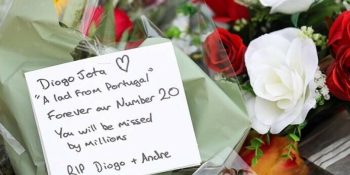 Diogo Jota ♡
"A lad from Portugal"
Forever our Number 20
You will be missed
by millions
RIP Diogo + Andre